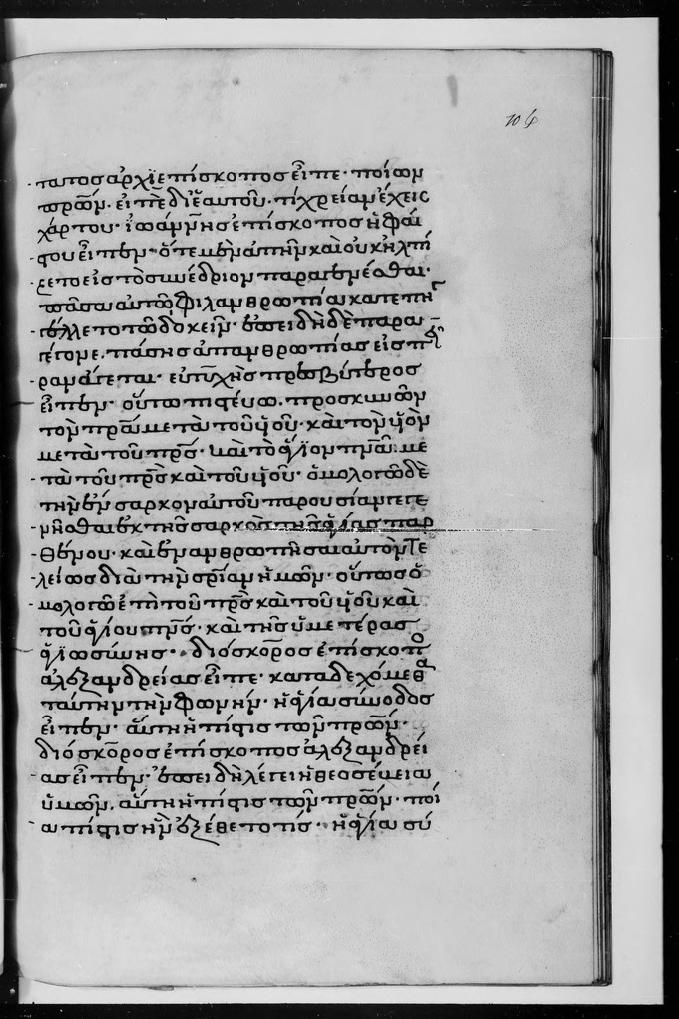 104
τατος ἀρχϊεπίσκοπος εἶπε· ποίων
πρων. εἰπὲ διἑαυτοῦ. τί χρείαν ἔχεις
χάρτου· ϊωάννης ἐπίσκοπος ἡφαί
στου εἶπεν· ὅτε μὲν ἀπῆν καὶ οὐκ ἠλπί
ζετο εἰς τὸ συνέδριον παραγενέσθαι·
πᾶσαν αὐτῶ φιλανθρωπίαν κατεπηγ
γέλλετο τῶ δοκεῖν· ἐπειδὴ δὲ παρα
γέγονε. πάσης ἀπανθρωπίας εἰς πεῖ
ραν ἄγεται· εὐτύχης πρεσβύτερος
εἶπεν· οὕτω πιστεύω. προσκυνῶν
τὸν πρα μετὰ τοῦ υἱοῦ· καὶ τὸν υἱὸν
μετὰ τοῦ πρς· καὶ τὸ ἅγιον πνα με
τὰ τοῦ πρς καὶ τοῦ υἱοῦ· ὁμολογῶ δὲ
τὴν ἔνσαρκον αὐτοῦ παρουσίαν γεγε
νῆσθαι ἐκ τῆς σαρκὸς τῆς ἁγίας παρ
θένου· καὶ ἐνανθρωπῆσαι αὐτὸν τε
λείως διὰ τὴν σρίαν ἡμῶν· οὕτως ὁ
μολογῶ ἐπὶ τοῦ πρς καὶ τοῦ υἱοῦ καὶ
τοῦ ἁγίου πνς· καὶ τῆς ὑμετέρας
ἁγϊωσύνης· διόσκορος ἐπίσκοπο
ἀλεξανδρείας εἶπε· καταδεχόμεθα
ταύτην τὴν φωνήν· ἡ ἁγία σύνοδος
εἶπεν· αὕτη ἡ πίστις τῶν πρων·
διόσκορος ἐπίσκοπος ἀλεξανδρεί
ας εἶπεν· ἐπειδὴ λέγει ἡ θεοσέβεια
ὑμῶν. αὕτη ἡ πίστις τῶν πρων· ποί
α πίστις ἣν ἐξέθετο τίς· ἡ ἁγία σύ